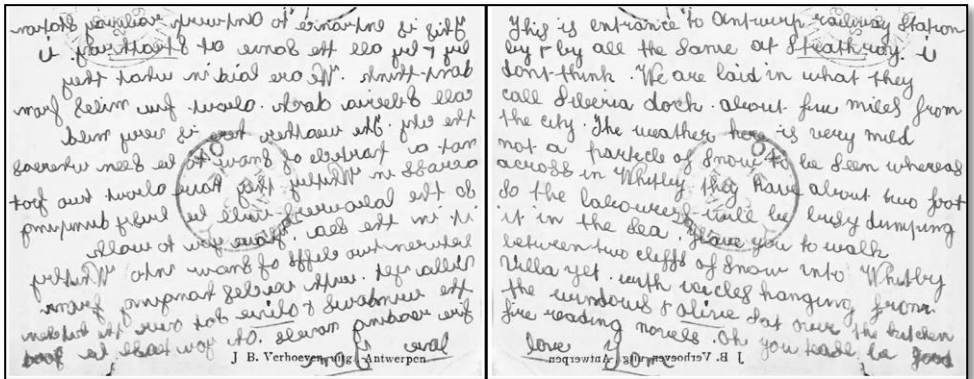 This is entrance to Antwerp railway Station
by & by all the same at Streathray. U
dont think. We are laid in what they
call Siberia dock. about five miles from
the city. The weather here is very mild
not a particle of Snow to be seen whereas
across in Whitby they Have about two foot
so the labourers will be busy dumping
it in the sea. Have you to walk
between two cliffs of Snow into Whitby
Villa yet. with icicles hanging from
the windows & olive Sat over the kitchen
fire reading novels. Oh you tease be good
love
J B. Verhoeven, uitg. Antwerpen